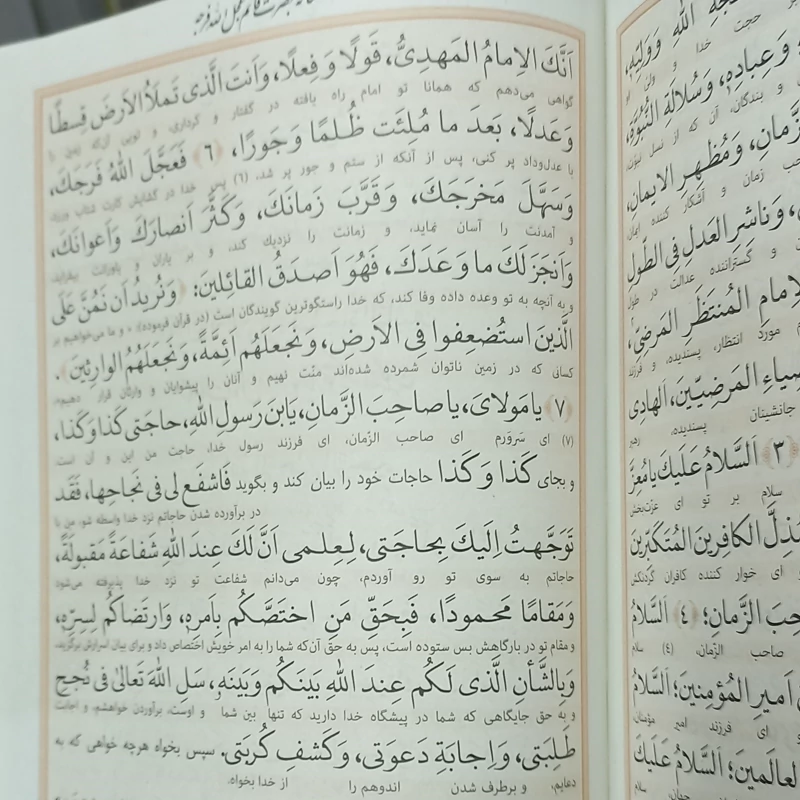 اَنَّكَ الاِمامُ المَهدِیُّ، قَولًا وَ فِعلًا، وَ اَنتَ الَّذی تَملَأُ الاَرضَ قِسطًا
گواهی می‌دهم که همانا تو امام راه یافته در گفتار و کرداری، و تویی آن‌که زمین را
وَ عَدلًا، بَعدَ ما مُلِئَت ظُلمًا وَ جَورًا، ﴿٦﴾ فَعَجَّلَ اللهُ فَرَجَكَ،
با عدل‌وداد پر کنی، پس از آنکه از ستم و جور پر شد. (۶) پس خدا در گشایش کارت شتاب ورزد
وَ سَهَّلَ مَخرَجَكَ، وَ قَرَّبَ زَمانَكَ، وَ كَثَّرَ اَنصارَكَ وَ اَعوانَكَ،
و آمدنت را آسان نماید، و زمانت را نزدیک کند، و بر یاران و یاورانت بیفزاید
وَ اَنجَزَ لَكَ ما وَعَدَكَ، فَهُوَ اَصدَقُ القائِلینَ: وَ نُریدُ اَن نَمُنَّ عَلَی
و به آنچه به تو وعده داده وفا کند، که خدا راستگوترین گویندگان است (در قرآن فرموده): « و ما می‌خواهیم بر
الَّذینَ استُضعِفوا فِی الاَرضِ، وَ نَجعَلَهُم اَئِمَّةً، وَ نَجعَلَهُمُ الوارِثینَ .
کسانی که در زمین ناتوان شمرده شده‌اند منّت نهیم و آنان را پیشوایان و وارثان قرار دهیم».
﴿٧﴾ یا مَولایَ، یا صاحِبَ الزَّمانِ، یَابنَ رَسولِ اللهِ، حاجَتی كَذا وَ كَذا،
(۷) ای سَروَرم ای صاحب الزّمان، ای فرزند رسول خدا، حاجت من این و آن است
و بجای كَذا وَ كَذا حاجات خود را بیان کند و بگوید فَاشفَع لی فی نَجاحِها، فَقَد
در برآورده شدن حاجاتم نزد خدا واسطه شو، من با
تَوَجَّهتُ اِلَیكَ بِحاجَتی، لِعِلمی اَنَّ لَكَ عِندَ اللهِ شَفاعَةً مَقبولَةً،
حاجاتم به سوی تو رو آوردم، چون می‌دانم شفاعت تو نزد خدا پذیرفته می‌شود
وَ مَقامًا مَحمودًا، فَبِحَقِّ مَنِ اختَصَّكُم بِاَمرِهِ، وَ ارتَضاكُم لِسِرِّهِ،
و مقام تو در بارگاهش بس ستوده است، پس به حق آن‌که شما را به امر خویش اختصاص داد و برای بیان اسرارش برگزید،
وَ بِالشَّأنِ الَّذی لَكُم عِندَ اللهِ بَینَكُم وَ بَینَهُ، سَلِ اللهَ تَعالیٰ فی نُجحِ
و به حق جایگاهی که شما در پیشگاه خدا دارید که تنها بین شما و اوست، برآوردن خواهشم، و اجابت
طَلِبَتی، وَ اِجابَةِ دَعوَتی، وَ كَشفِ كُربَتی. سپس بخواه هرچه خواهی که به
دعایم، و برطرف شدن اندوهم را از خدا بخواه.
اللهِ وَ وَلِیِّهِ،
حجت خدا و ولیّ
وَ عِبادِهِ، وَ سُلالَةِ النُّبُوَّةِ،
و بندگان، آن که از نسل نبوّت
وَ مُظهِرِ الایمانِ،
زمان و آشکار کننده ایمان
وَ ناشِرِ العَدلِ فِی الطّولِ
و گستراننده عدالت در طول
المُنتَظَرِ المَرضِیِّ،
مورد انتظار، پسندیده، و فرزند
المَرضِیّینَ، اَلهادِی
جانشینان پسندیده، رهبر
﴿٣﴾ اَلسَّلامُ عَلَیكَ یا مُعِزَّ
سلام بر تو ای عزّت‌بخش
الكافِرینَ المُتَكَبِّرینَ
و ای خوار کننده کافران گردنکش
الزَّمانِ؛ ﴿٤﴾ اَلسَّلامُ
صاحب الزّمان، (۴) سلام
اَمیرِ المُؤمِنینَ؛ اَلسَّلامُ
ای فرزند امیر مؤمنان
اَلسَّلامُ عَلَیكَ